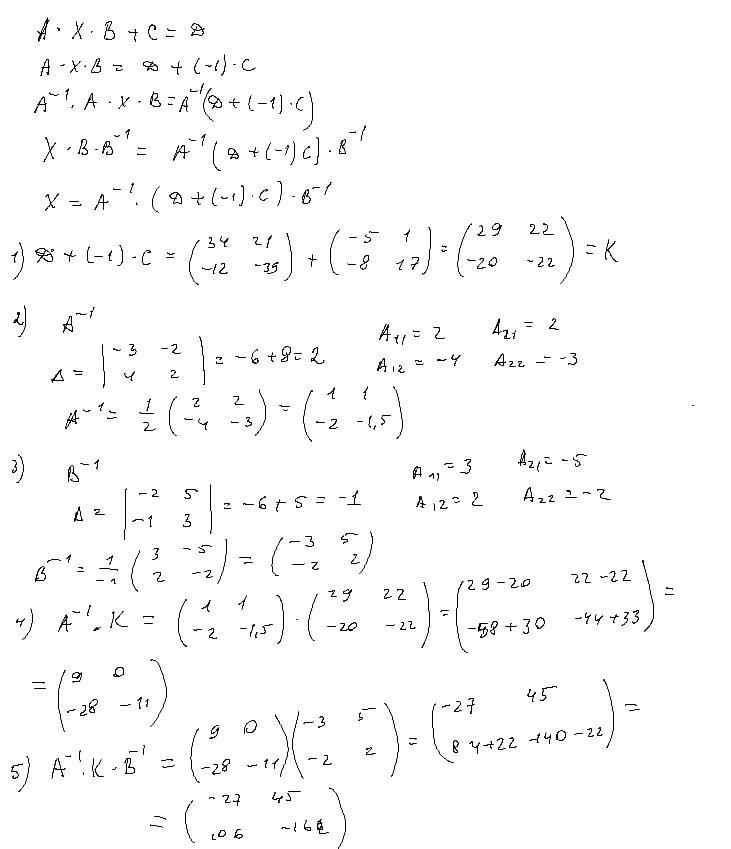 A · X · B + C = D
A · X · B = D + (-1) · C
A⁻¹ · A · X · B = A⁻¹(D + (-1) · C)
X · B · B⁻¹ = A⁻¹(D + (-1)C) · B⁻¹
X = A⁻¹ · (D + (-1) · C) · B⁻¹
1) D + (-1) · C = (34 21; -12 -39) + (-5 1; -8 17) = (29 22; -20 -22) = K
2) A⁻¹
Δ = |-3 -2; 4 2| = -6 + 8 = 2 A₁₁ = 2 A₂₁ = 2 A₁₂ = -4 A₂₂ = -3
A⁻¹ = 1/2 (2 2; -4 -3) = (1 1; -2 -1,5)
3) B⁻¹
Δ = |-2 5; -1 3| = -6 + 5 = -1 A₁₁ = 3 A₂₁ = -5 A₁₂ = 2 A₂₂ = -2
B⁻¹ = 1/-1 (3 -5; 2 -2) = (-3 5; -2 2)
4) A⁻¹ · K = (1 1; -2 -1,5) · (29 22; -20 -22) = (29-20 22-22; -58+30 -44+33) =
= (9 0; -28 -11)
5) A⁻¹ · K · B⁻¹ = (9 0; -28 -11)(-3 5; -2 2) = (-27 45; 84+22 -140-22) =
= (-27 45; 106 -162)